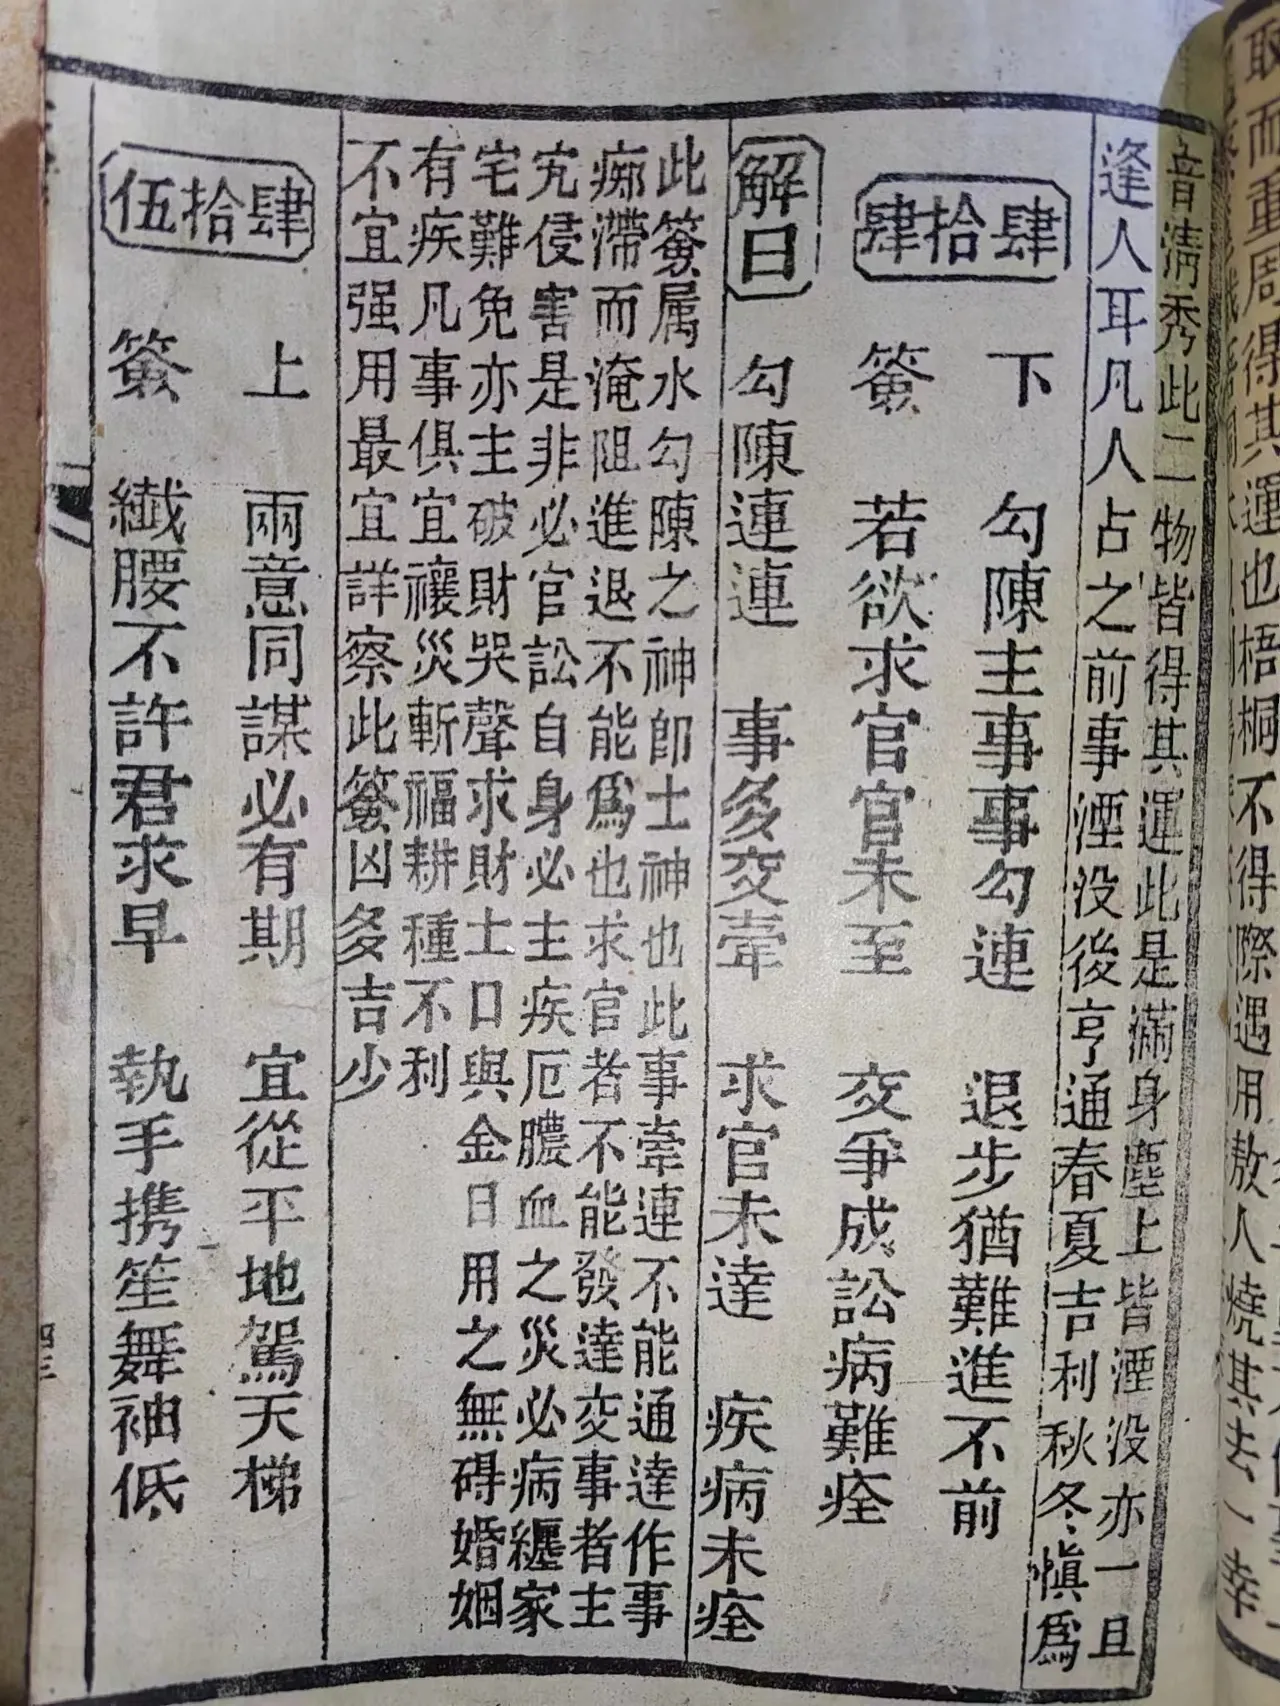 取而重周得其運也梧桐不得際遇用敖人燒其去一幸
音清秀此二物皆得其運此是滿身塵上皆湮没亦一旦
逢人耳凡人占之前事湮没後亨通春夏吉利秋冬愼爲
肆拾肆
下 勾陳主事事勾連 退步猶難進不前
簽 若欲求官官未至 交爭成訟病難痊
解曰 勾陳連連 事多交牽 求官未達 疾病未痊
此簽属水勾陳之神卽土神也此事牽連不能通達作事
痴滯而淹阻進退不能爲也求官者不能發達交事者主
宄侵害是非必官訟自身必主疾厄膿血之災必病纏家
宅難免亦主破財哭聲求財土口與金日用之無碍婚姻
有疾凡事俱宜禳災斬福耕種不利
不宜强用最宜詳察此簽凶多吉少
肆拾伍
上 兩意同謀必有期 宜從平地駕天梯
簽 纖腰不許君求早 執手携笙舞袖低
四三